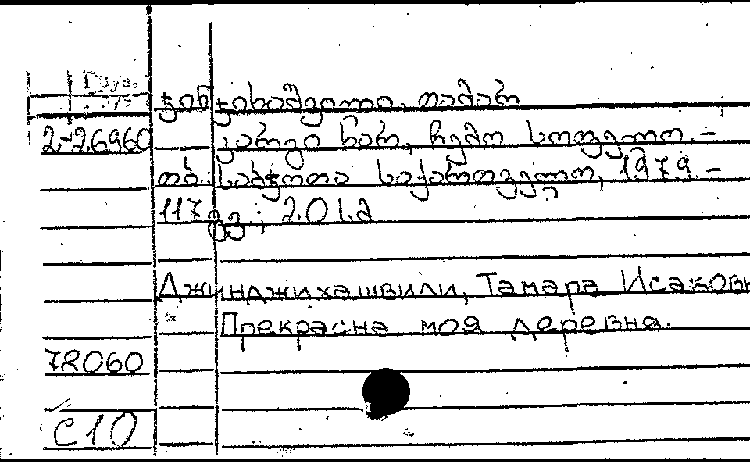 Груз.
ჯინჯიხაშვილი, თამარ
2-26960 კარგი ხარ, ჩემო სოფელო. –
თბ. საბჭოთა საქართველო, 1979 –
117 გვ; 2.01.a
Джинджихашвили, Тамара Исаковн
Прекрасна моя деревня.
72060
C10